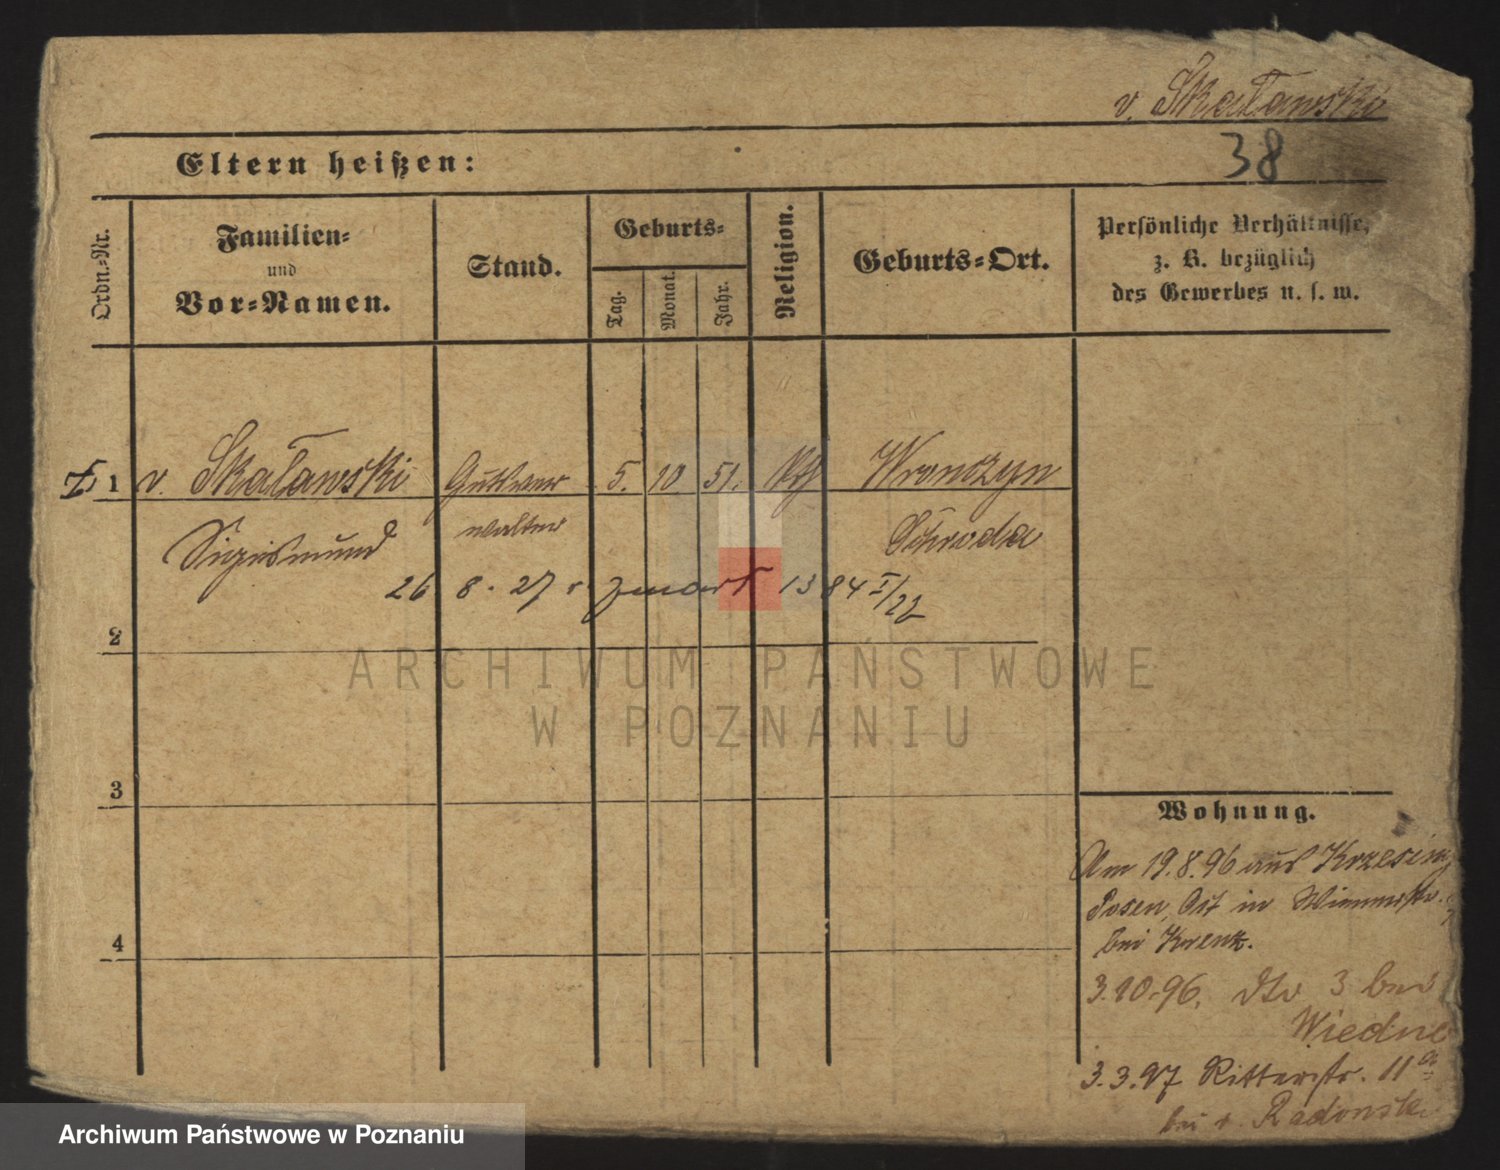 v. Skaławski
38
Eltern heißen:
Ordn.-Nr.
Familien-
und
Vor-Namen.
Stand.
Geburts-
Tag.
Monat.
Jahr.
Religion.
Geburts-Ort.
Persönliche Verhältnisse,
z. B. bezüglich
des Gewerbes u. s. w.
1 v. Skaławski Gutsver 5. 10 51. kth Wronczyn
Sigismund walter Schroda
26 8. 27 r zmarł 1384 I/22
2
3
4
ARCHIWUM PAŃSTWOWE
W POZNANIU
Wohnung.
Am 19.8.96 aus Krzesin
Posen, Ost in
bei Krenz.
3.10.96. dto 3 bei
Wiedne
3.3.97 Ritterstr. 11a
bei v. Radonsk
Archiwum Państwowe w Poznaniu